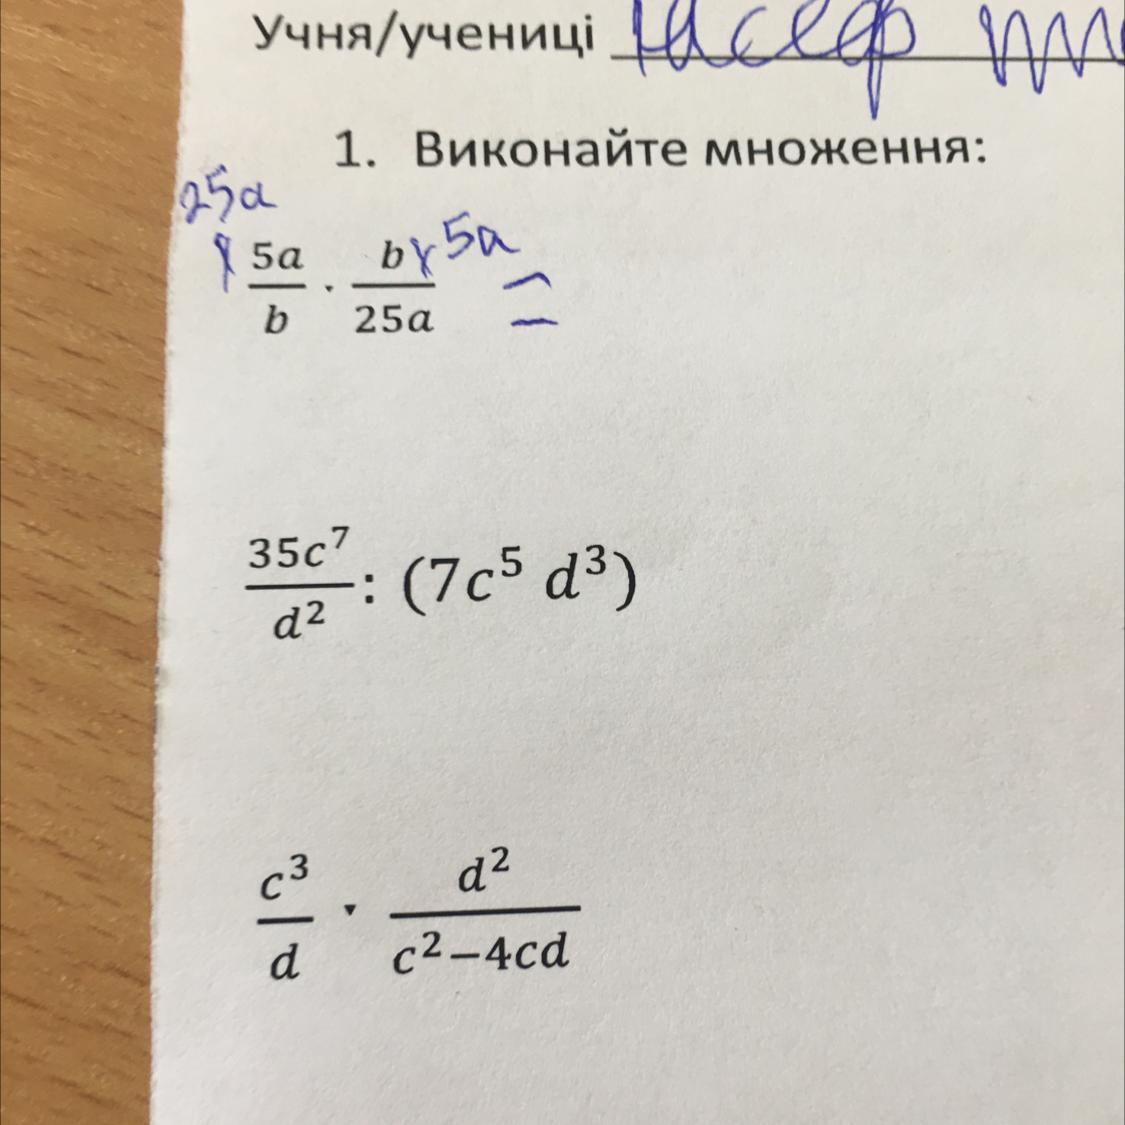 Учня/учениці
1. Виконайте множення:
25a
5a/b · b/25a 5a =
35c⁷/d² : (7c⁵ d³)
c³/d · d²/c²−4cd